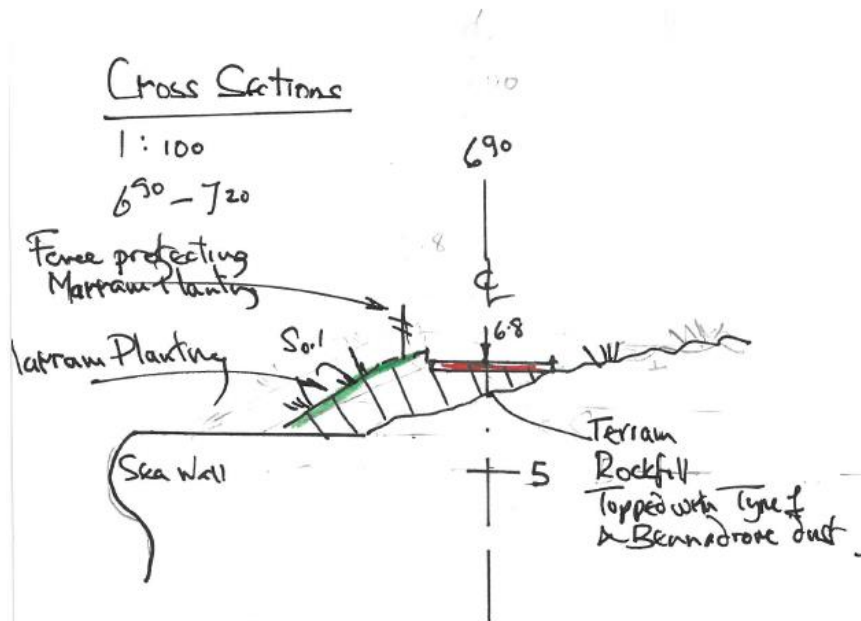 Cross Sections
1 : 100
6⁹⁰ – 7²⁰
6⁹⁰
Fence protecting
Marram Planting
℄
6.8
Soil
Marram Planting
Sea Wall
5
Terram
Rockfill
Topped with Type 1
& Bennadrove dust